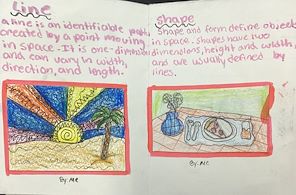 Line
a line is an identifiable path
created by a point moving
in space. It is one-dimension
and can vary in width,
direction, and length.
By: ME
shape
Shape and form define objects
in space. Shapes have two
dimensions, height and width,
and are usually defined by
lines.
By: ME